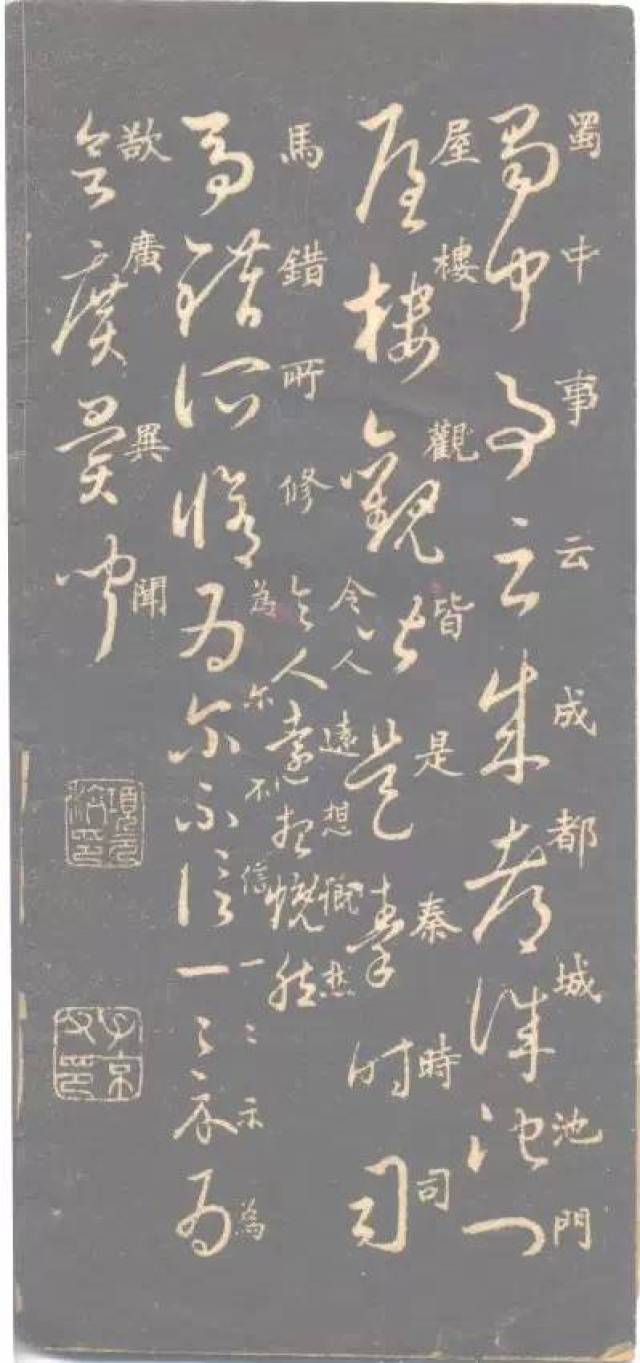 蜀中事云成都城池門
蜀中事云成都城池門
屋樓觀皆是秦時司
屋樓觀皆是秦時司
令人遠想慨然
令人遠想慨然
馬錯所修為尔不信一二示為
馬錯所修為尔不信一二示為
欲廣異聞
欲廣異聞
項元汴印
子京父印